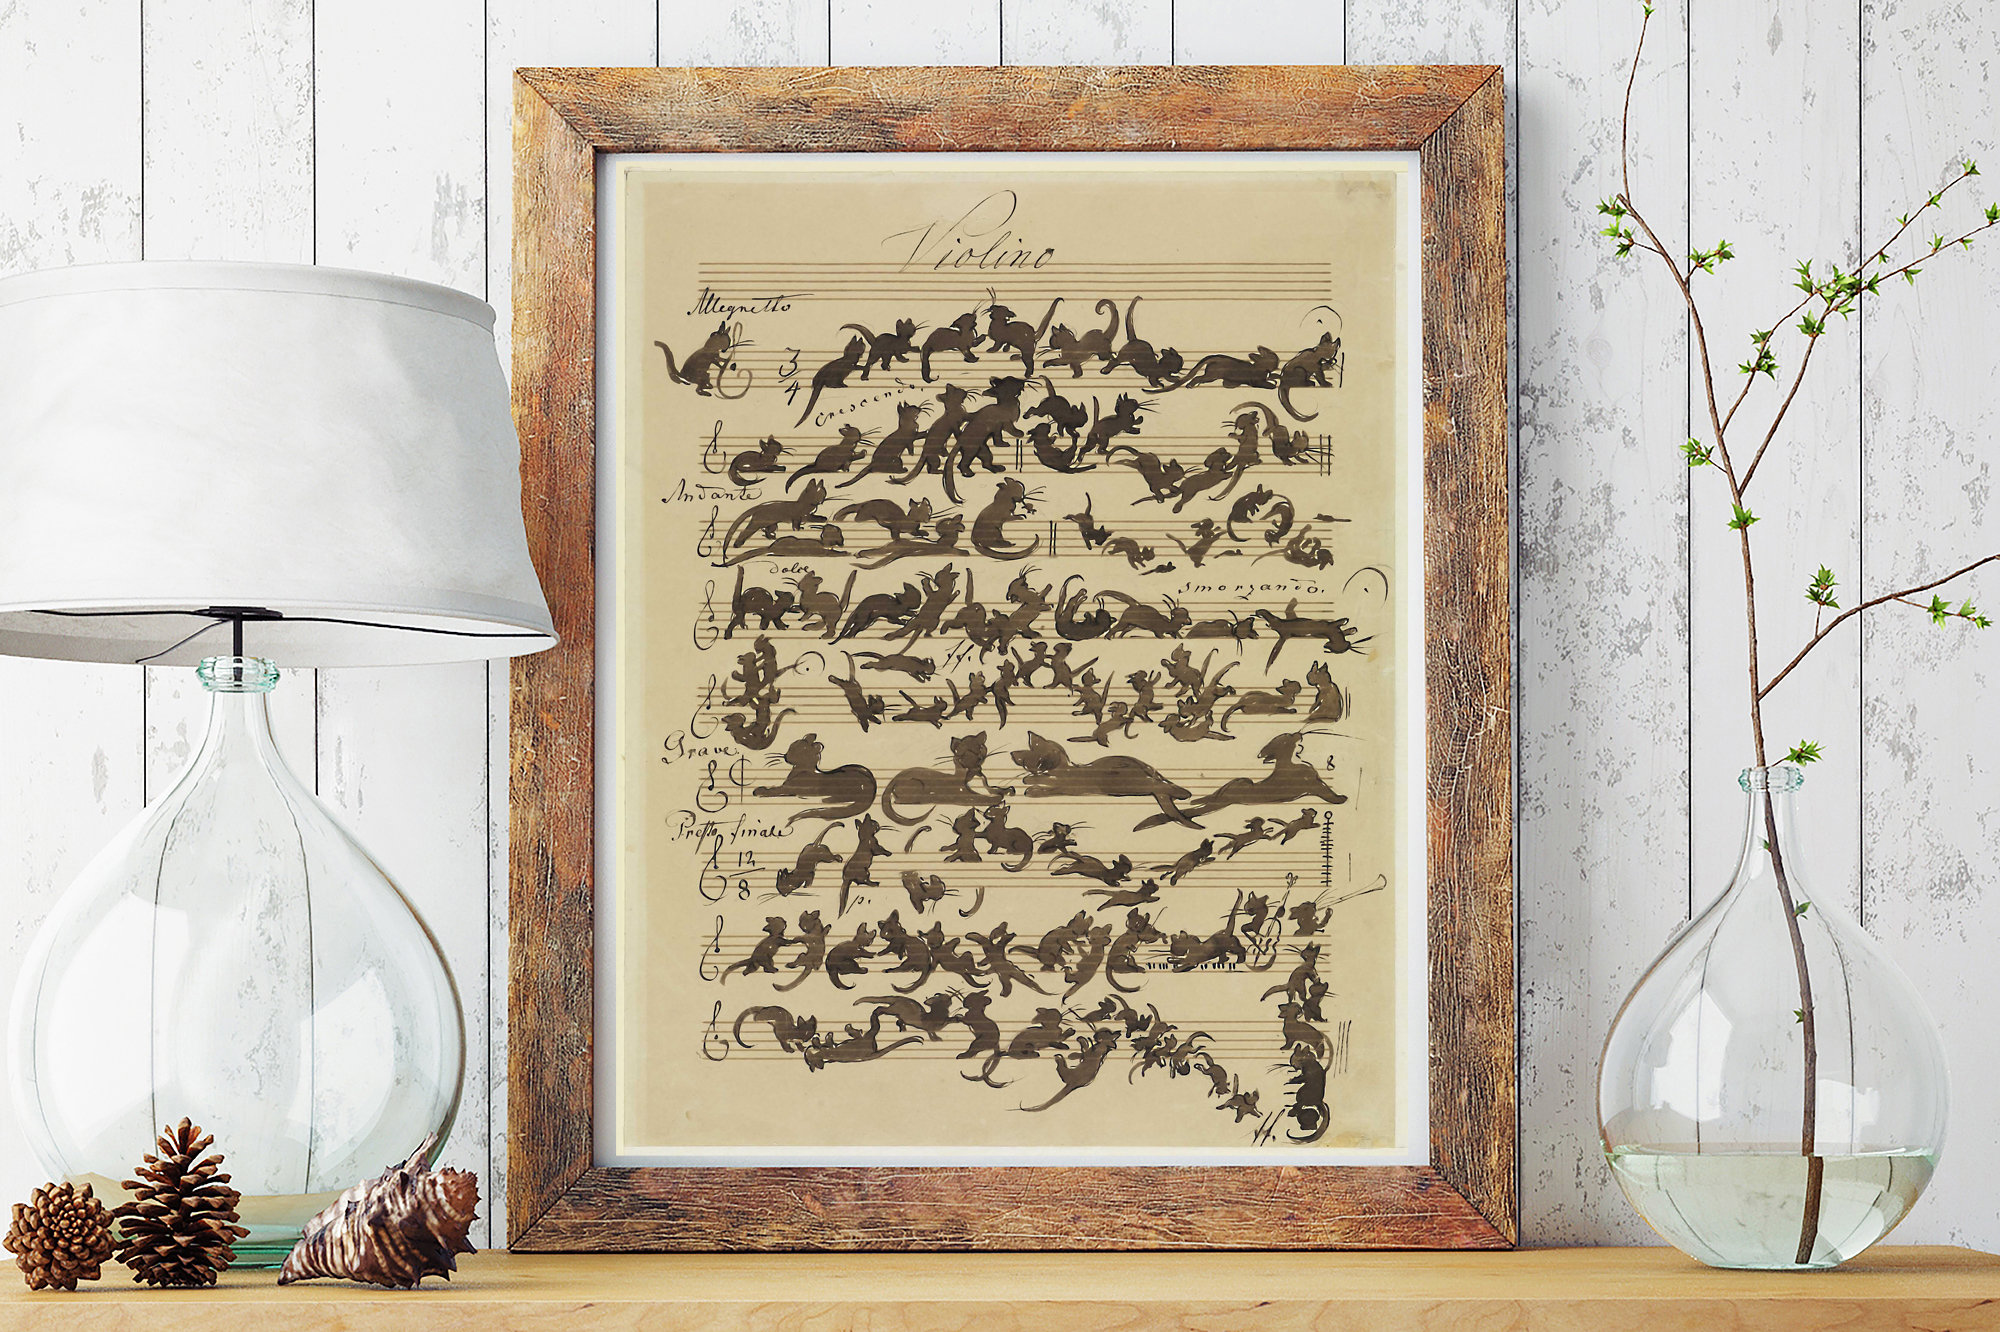 Violino
Allegretto
3/4
crescendo.
Andante
dolce
smorzando.
ff.
Grave.
8
Presto finale
12/8
p.
ff.